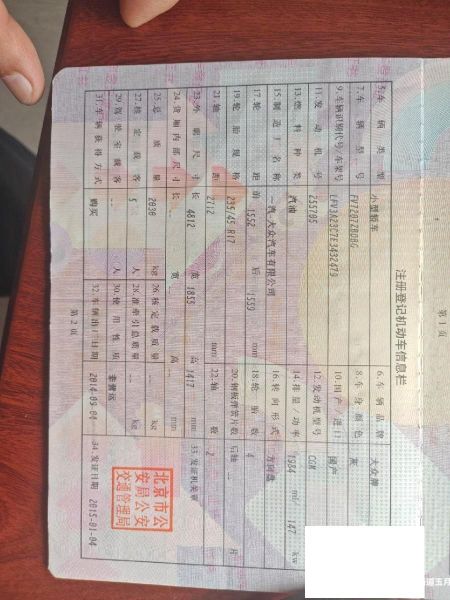 第1页
注册登记机动车信息栏
5.车辆类型 小型轿车 6.车辆品牌 大众牌
7.车辆型号 FV7207BDBG 8.车身颜色 灰
9.车辆识别代号/车架号 LFV3A23C7E3432479 10.国产/进口 国产
11.发动机号 255705 12.发动机型号 CGM
13.燃料种类 汽油 14.排量/功率 1984 ml/ 147 kw
15.制造厂名称 一汽-大众汽车有限公司 16.转向形式 方向盘
17.轮距 前 1552 后 1559 mm 18.轮胎数 4
19.轮胎规格 235/45 R17 20.钢板弹簧片数 后轴 -- 片
21.轴距 2712 mm 22.轴数 2
23.外廓尺寸 长 4812 宽 1855 高 1417 mm
24.货厢内部尺寸 长 -- 宽 -- 高 -- mm
25.总质量 2030 kg 26.核定载质量 -- kg
27.核定载客 5 人 28.准牵引总质量 -- kg
29.驾驶室载客 -- 人 30.使用性质 非营运
31.车辆获得方式 购买 32.车辆出厂日期 2014-09-04
33.发证机关章
北京市公
安局公安
交通管理局
34.发证日期 2015-01-04
第2页